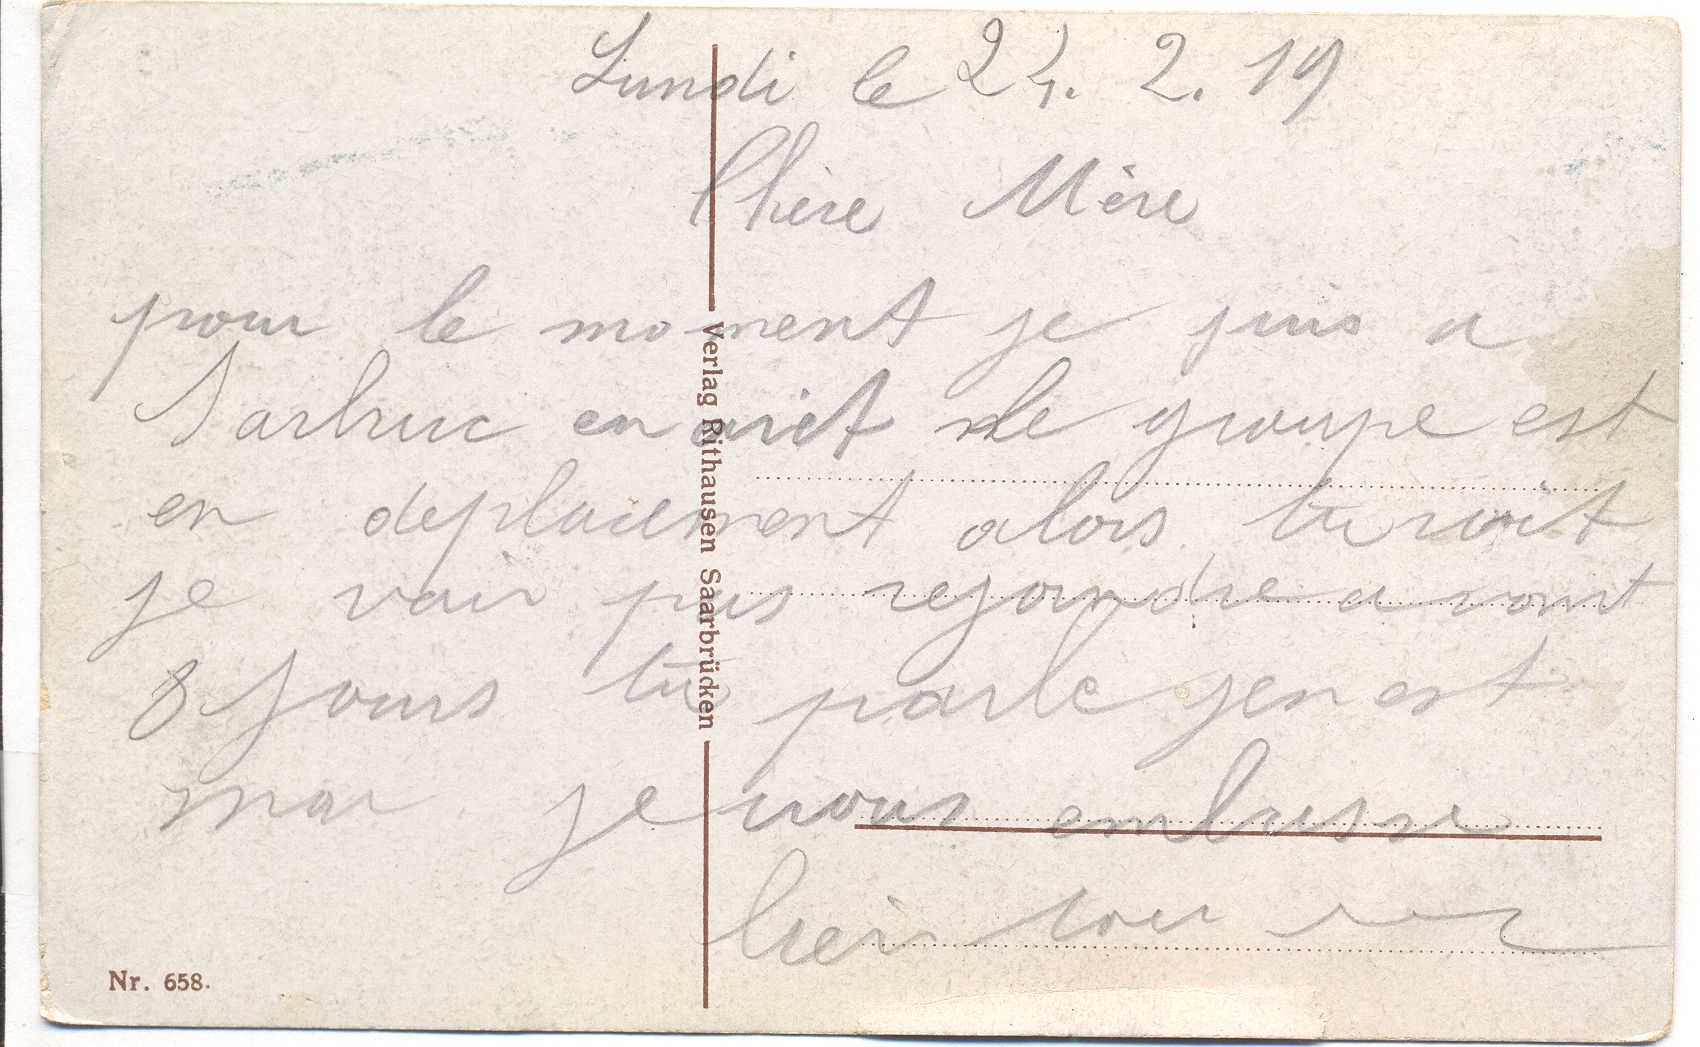 Lundi le 24. 2. 19
Chère Mère
pour le moment je suis a
Sarbruc en arret le groupe est
en deplacement alors tu voit
je vair pas rejoindre avant
8 jours tu parle jen est
mar je vous embrasse
bien
Verlag Rithausen Saarbrücken
Nr. 658.